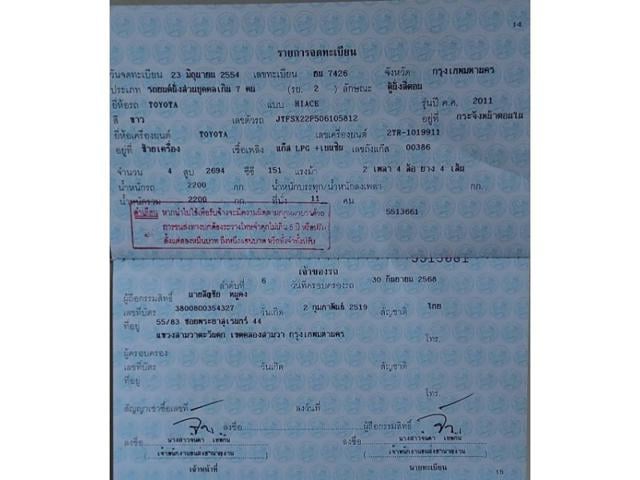 14
รายการจดทะเบียน
วันจดทะเบียน 23 มิถุนายน 2554 เลขทะเบียน ฮน 7426 จังหวัด กรุงเทพมหานคร
ประเภท รถยนต์นั่งส่วนบุคคลเกิน 7 คน (รย. 2 ) ลักษณะ ตู้นั่งสี่ตอน
ยี่ห้อรถ TOYOTA แบบ HIACE รุ่นปี ค.ศ. 2011
สี ขาว เลขตัวรถ JTFSX22P506105812 อยู่ที่ กระจังหน้าตอนใน
ยี่ห้อเครื่องยนต์ TOYOTA เลขเครื่องยนต์ 2TR-1019911
อยู่ที่ ซ้ายเครื่อง เชื้อเพลิง แก๊ส LPG +เบนซิน เลขถังแก๊ส 00386
จำนวน 4 สูบ 2694 ซีซี 151 แรงม้า 2 เพลา 4 ล้อ ยาง 4 เส้น
น้ำหนักรถ 2200 กก. น้ำหนักบรรทุก/น้ำหนักลงเพลา กก.
น้ำหนักรวม 2200 กก. ที่นั่ง 11 คน
คำเตือน หากนำไปใช้เพื่อรับจ้างจะมีความผิดตามกฎหมายว่าด้วย
การขนส่งทางบกต้องระวางโทษจำคุกไม่เกิน 5 ปี หรือปรับ
ตั้งแต่สองหมื่นบาท ถึงหนึ่งแสนบาท หรือทั้งจำทั้งปรับ
5513661
5513661
เจ้าของรถ
ลำดับที่ 6 วันที่ครอบครองรถ 30 กันยายน 2568
ผู้ถือกรรมสิทธิ์ นาย
เลขที่บัตร 3800800354327 วันเกิด 2 กุมภาพันธ์ 2519 สัญชาติ ไทย
ที่อยู่ 55/83 ซอยพระยาสุเรนทร์ 44
แขวงสามวาตะวันตก เขตคลองสามวา กรุงเทพมหานคร โทร.
ผู้ครอบครอง
เลขที่บัตร วันเกิด สัญชาติ
ที่อยู่
โทร.
สัญญาเช่าซื้อเลขที่ ลงวันที่
ลงชื่อ ผู้ถือกรรมสิทธิ์
ลงชื่อ นางสาวจินดา เทพทิม ลงชื่อ นางสาวจินดา เทพทิม
(เจ้าพนักงานขนส่งชำนาญงาน) (เจ้าพนักงานขนส่งชำนาญงาน)
เจ้าหน้าที่ นายทะเบียน
15